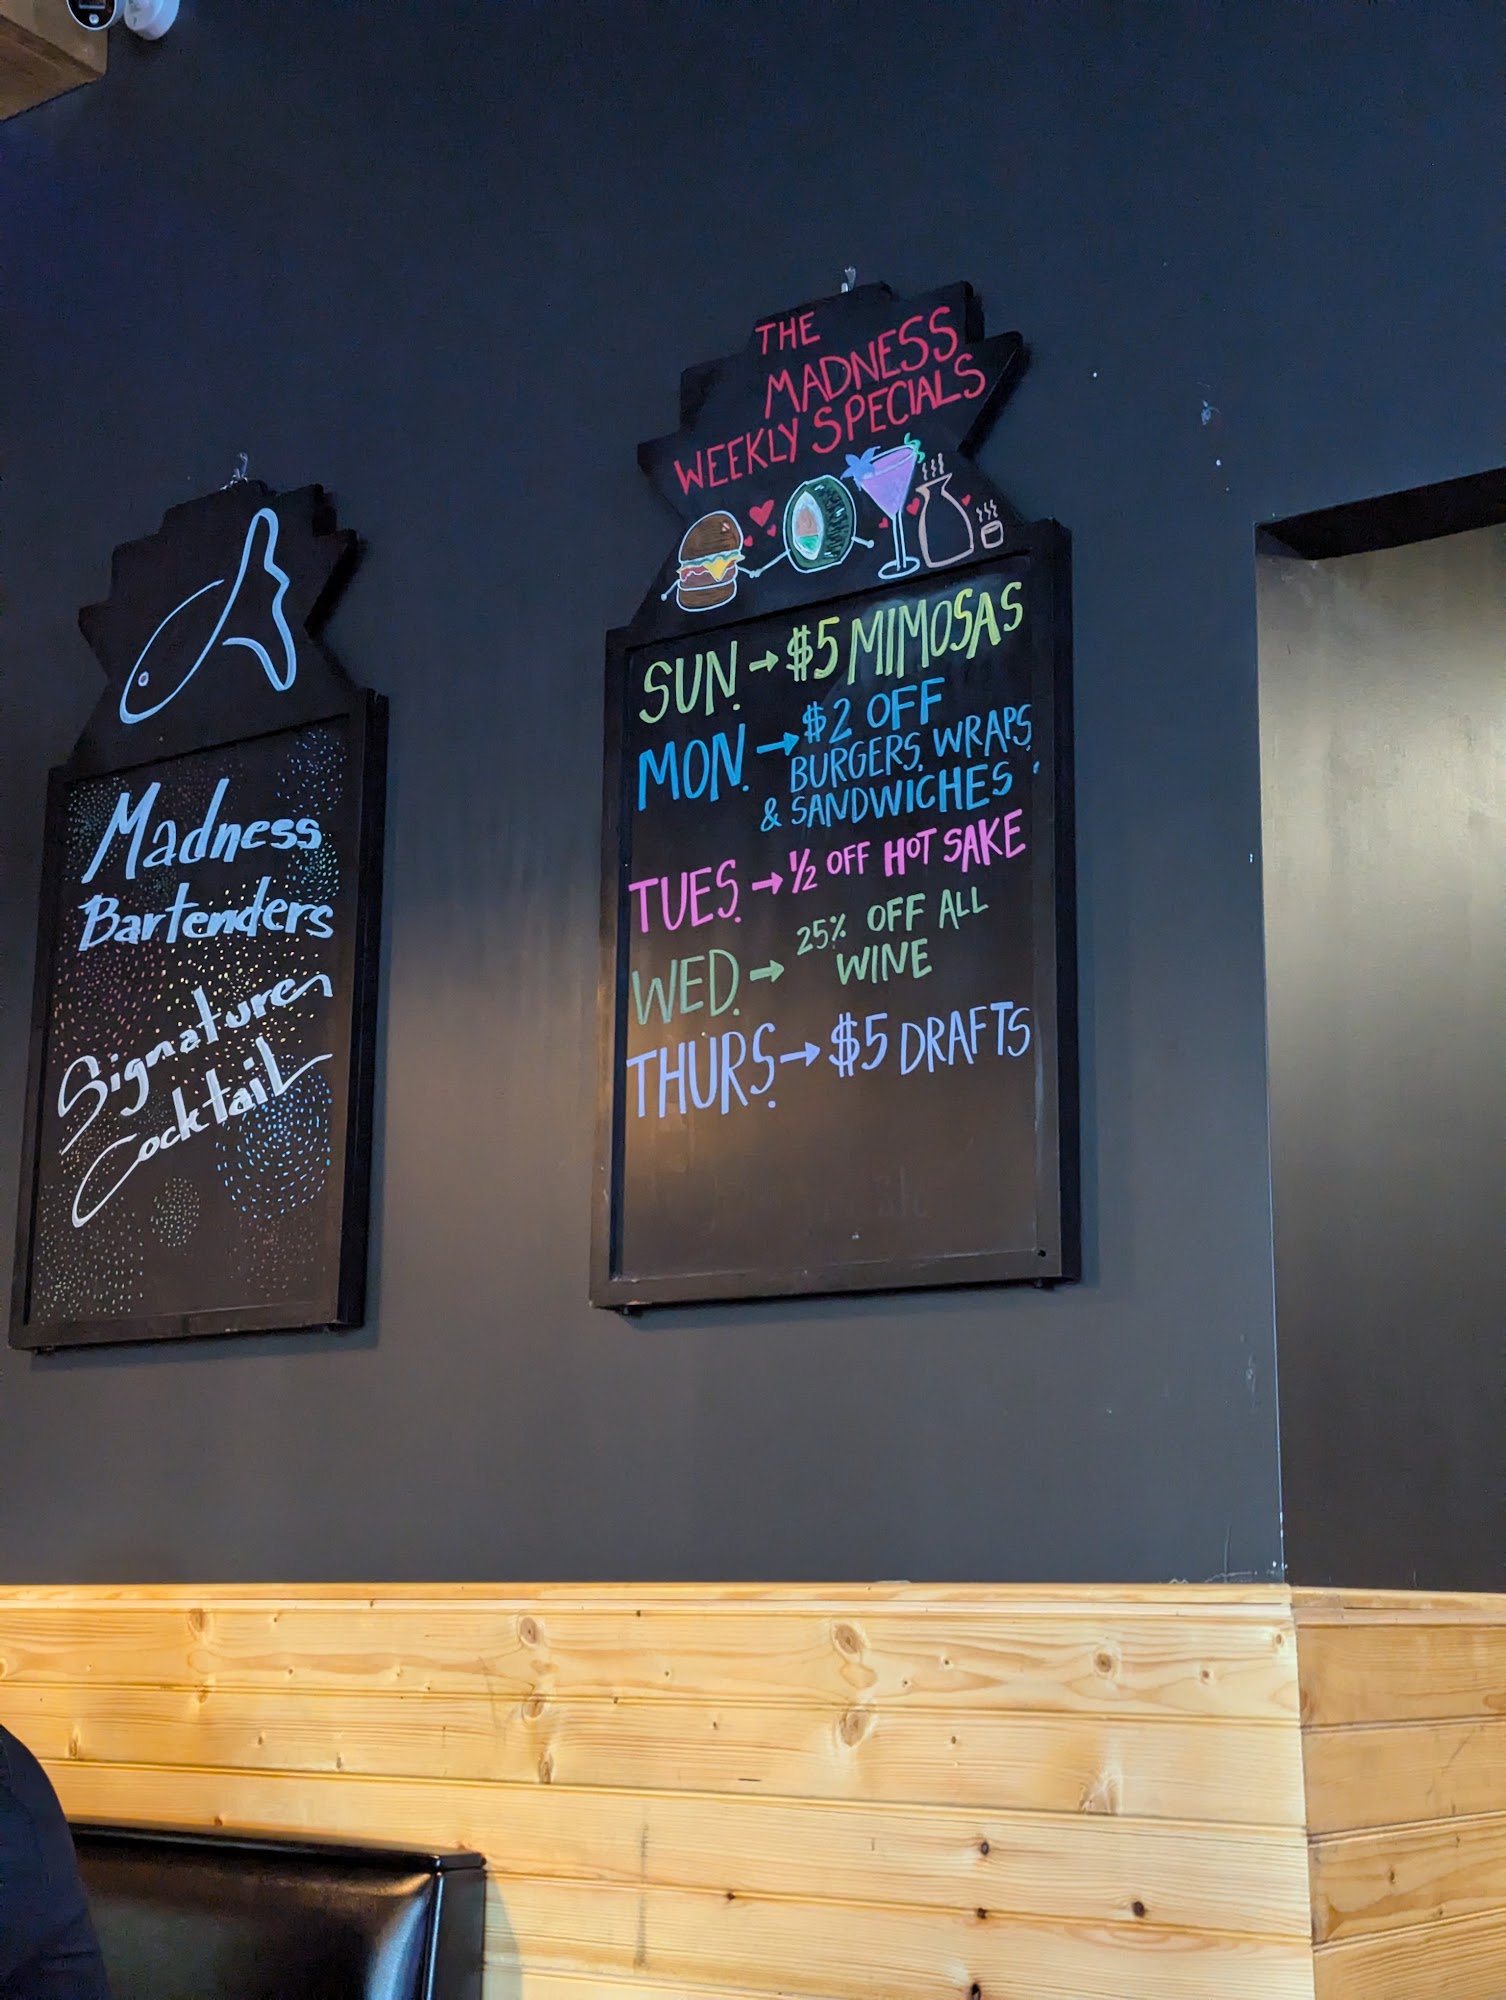 Madness
Bartenders
Signature
Cocktail
THE
MADNESS
WEEKLY SPECIALS
SUN. → $5 MIMOSAS
MON. → $2 OFF
BURGERS, WRAPS,
& SANDWICHES
TUES. → ½ OFF HOT SAKE
WED. → 25% OFF ALL
WINE
THURS. → $5 DRAFTS